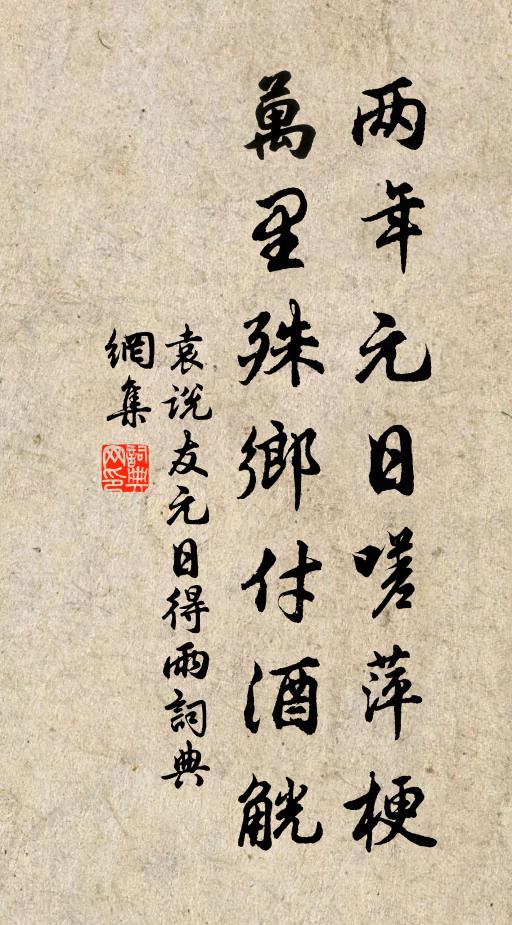 两年元日嗟萍梗
萬里殊鄉付酒觥
袁説友元日得雨詞典
網集
詞典網印